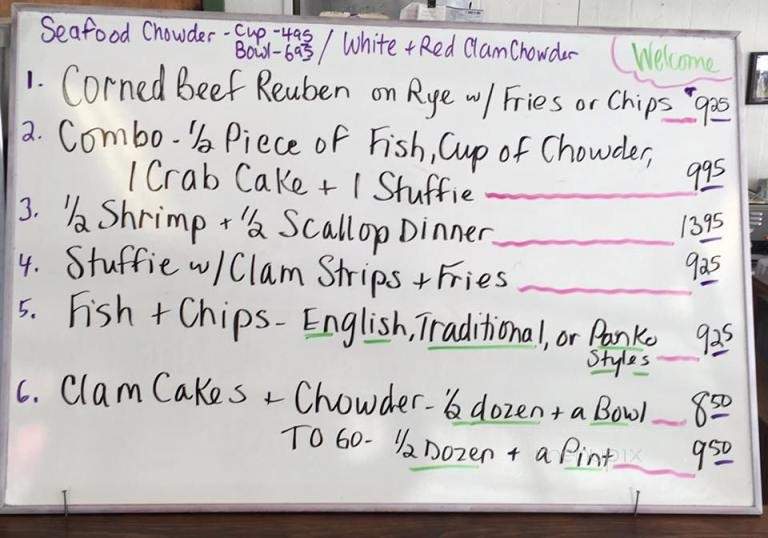 Seafood Chowder - Cup - 495 / White + Red Clam Chowder
Bowl - 695
Welcome
1. Corned Beef Reuben on Rye w/ Fries or Chips $925
2. Combo - 1/2 Piece of Fish, Cup of Chowder,
1 Crab Cake + 1 Stuffie 995
3. 1/2 Shrimp + 1/2 Scallop Dinner 1395
4. Stuffie w/ Clam Strips + Fries 925
5. Fish + Chips - English, Traditional, or Panko 925
Styles
6. Clam Cakes + Chowder - 1/2 dozen + a Bowl 850
TO GO - 1/2 Dozen + a Pint 950